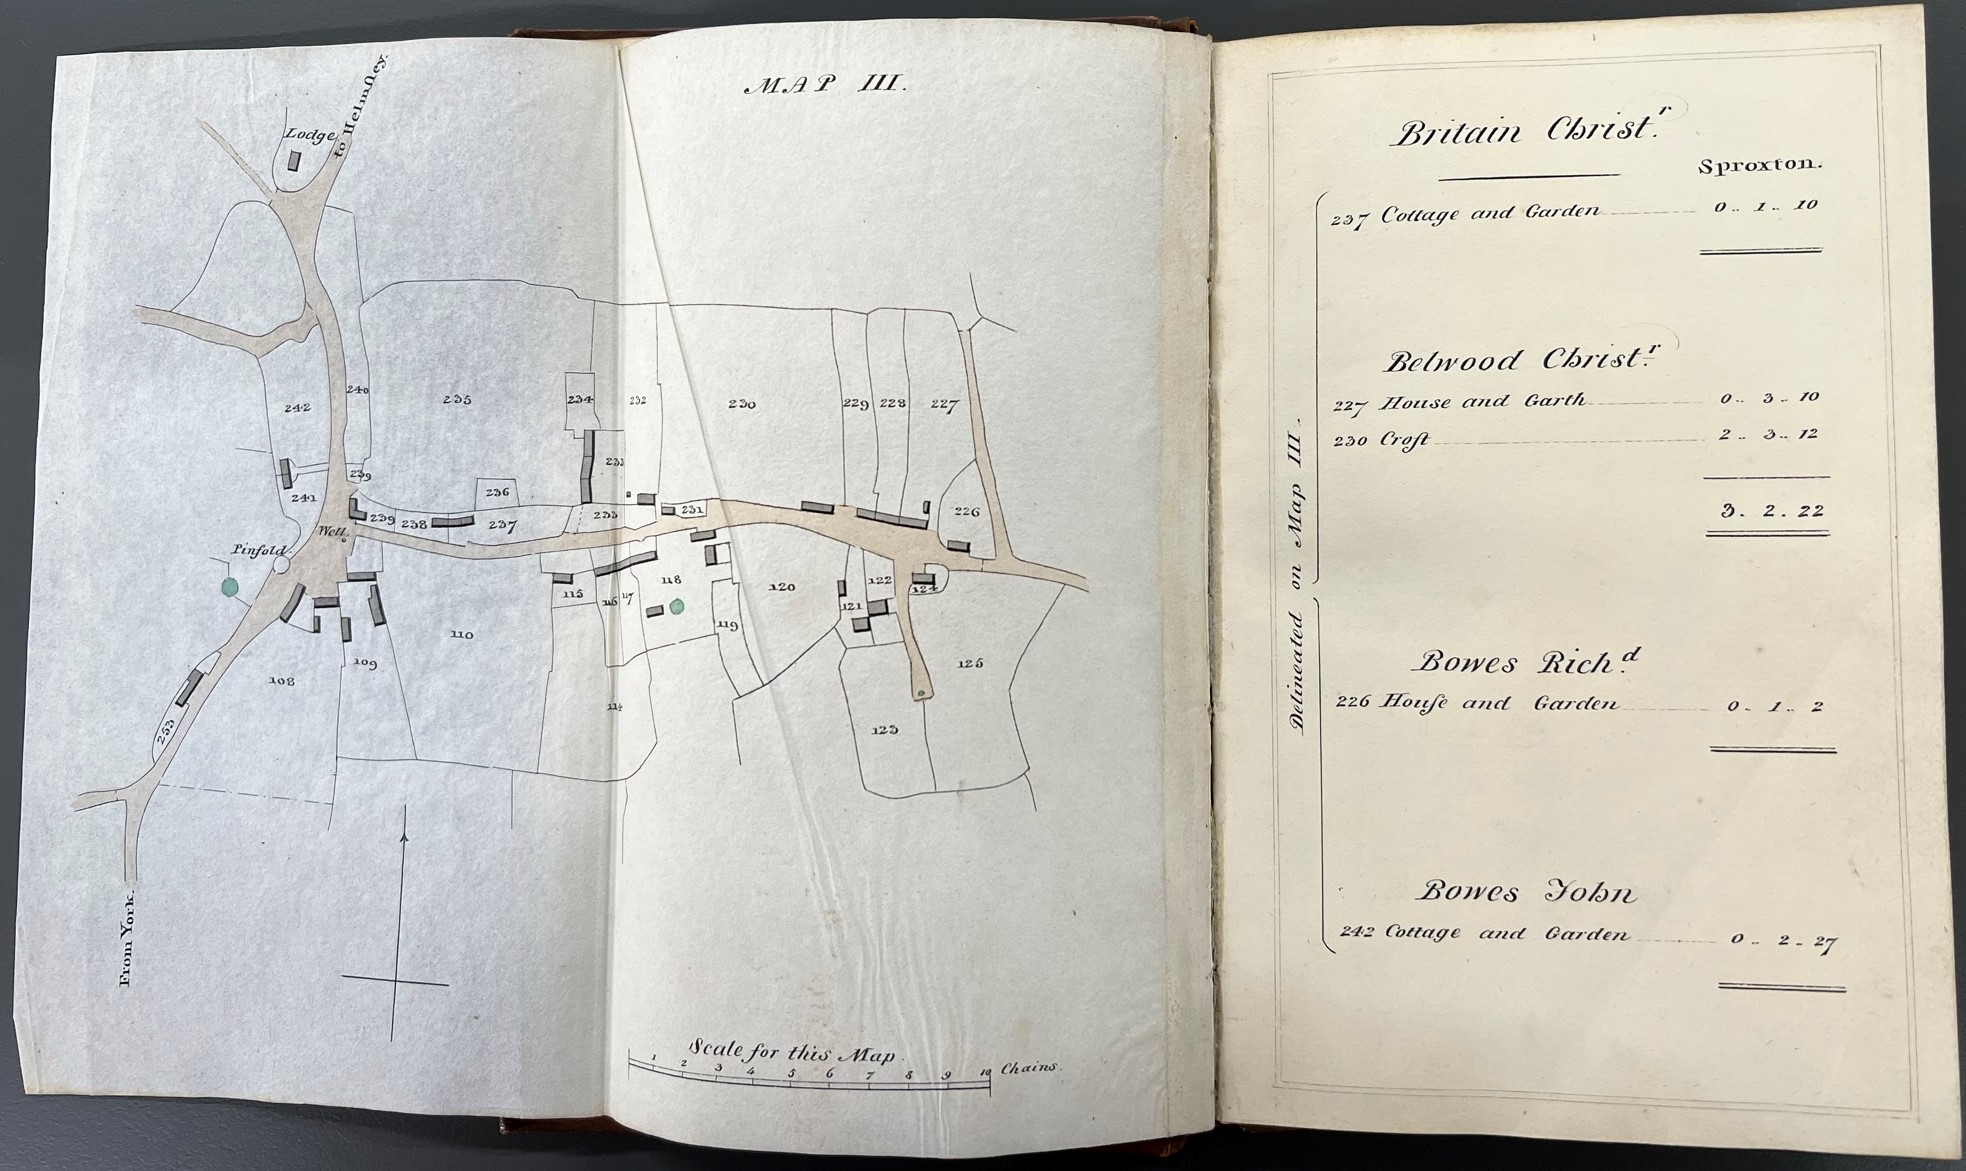 MAP III.
to Helmsley.
Lodge
240
242
235
234
232
230
229
228
227
239
233
241
236
231
226
239
238
237
233
Well.
Pinfold.
118
120
122
124
115
116
117
121
119
110
109
108
125
114
123
253
From York.
Scale for this Map.
1 2 3 4 5 6 7 8 9 10 Chains.
Britain Christ.r
Sproxton.
237 Cottage and Garden 0.. 1.. 10
Belwood Christ.r
227 House and Garth 0.. 3.. 10
230 Croft 2.. 3.. 12
3. 2. 22
Delineated on Map III.
Bowes Rich.d
226 Houſe and Garden 0.. 1.. 2
Bowes John
242 Cottage and Garden 0.. 2.. 27